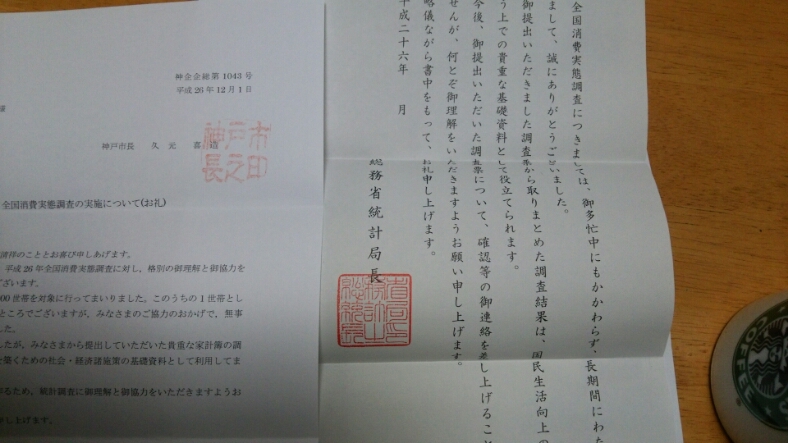 神企企総第1043号
平成26年12月1日
神戸市長 久元 喜造
神戸市
長之印
全国消費実態調査の実施について(お礼)
清祥のこととお喜び申しあげます。
平成26年全国消費実態調査に対し、格別の御理解と御協力を
ございます。
00世帯を対象に行ってまいりました。このうちの1世帯とし
ところでございますが、みなさまのご協力のおかげで、無事
した。
したが、みなさまから提出していただいた貴重な家計簿の調
を築くための社会・経済諸施策の基礎資料として利用してま
るため、統計調査に御理解と御協力をいただきますようお
申し上げます。
全国消費実態調査につきましては、御多忙中にもかかわらず、長期間にわた
まして、誠にありがとうございました。
御提出いただきました調査票から取りまとめた調査結果は、国民生活向上の
う上での貴重な基礎資料として役立てられます。
今後、御提出いただいた調査票について、確認等の御連絡を差し上げること
せんが、何とぞ御理解をいただきますようお願い申し上げます。
略儀ながら書中をもって、お礼申し上げます。
平成二十六年 月
総務省統計局長
COFFEE